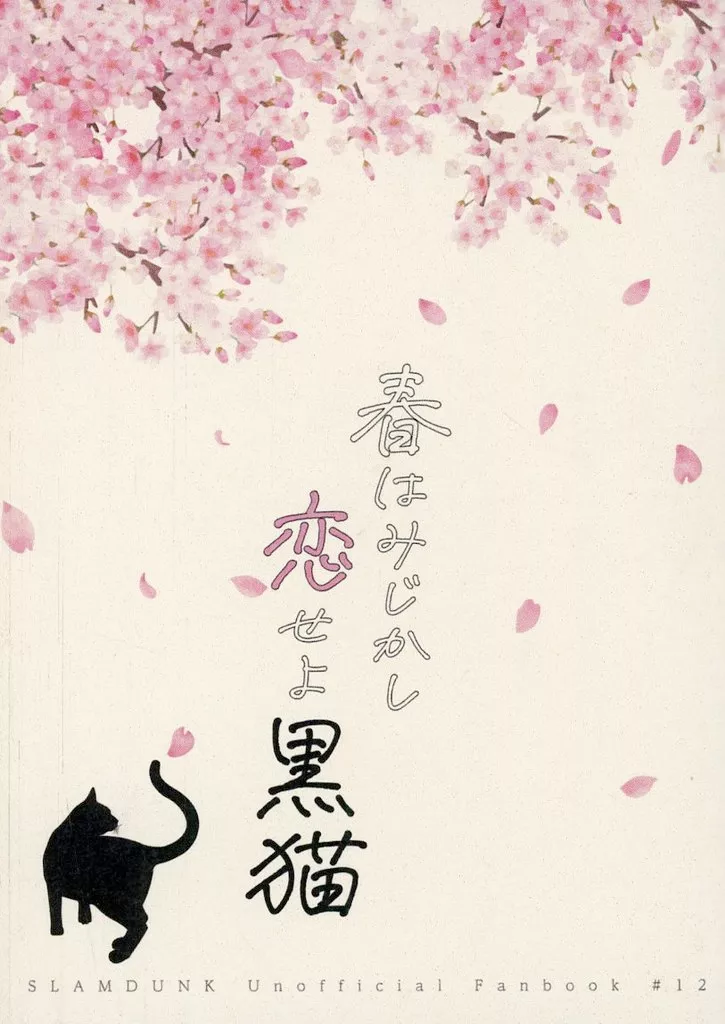 春はみじかし
恋せよ
黒猫
SLAMDUNK Unofficial Fanbook #12